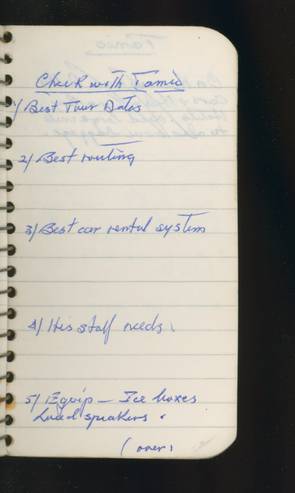 Check with Tamid
1/ Best Tour Dates
2/ Best routing
3/ Best car rental system
4/ His staff needs,
5/ Equip — Ice boxes
Loud speakers.
(over)